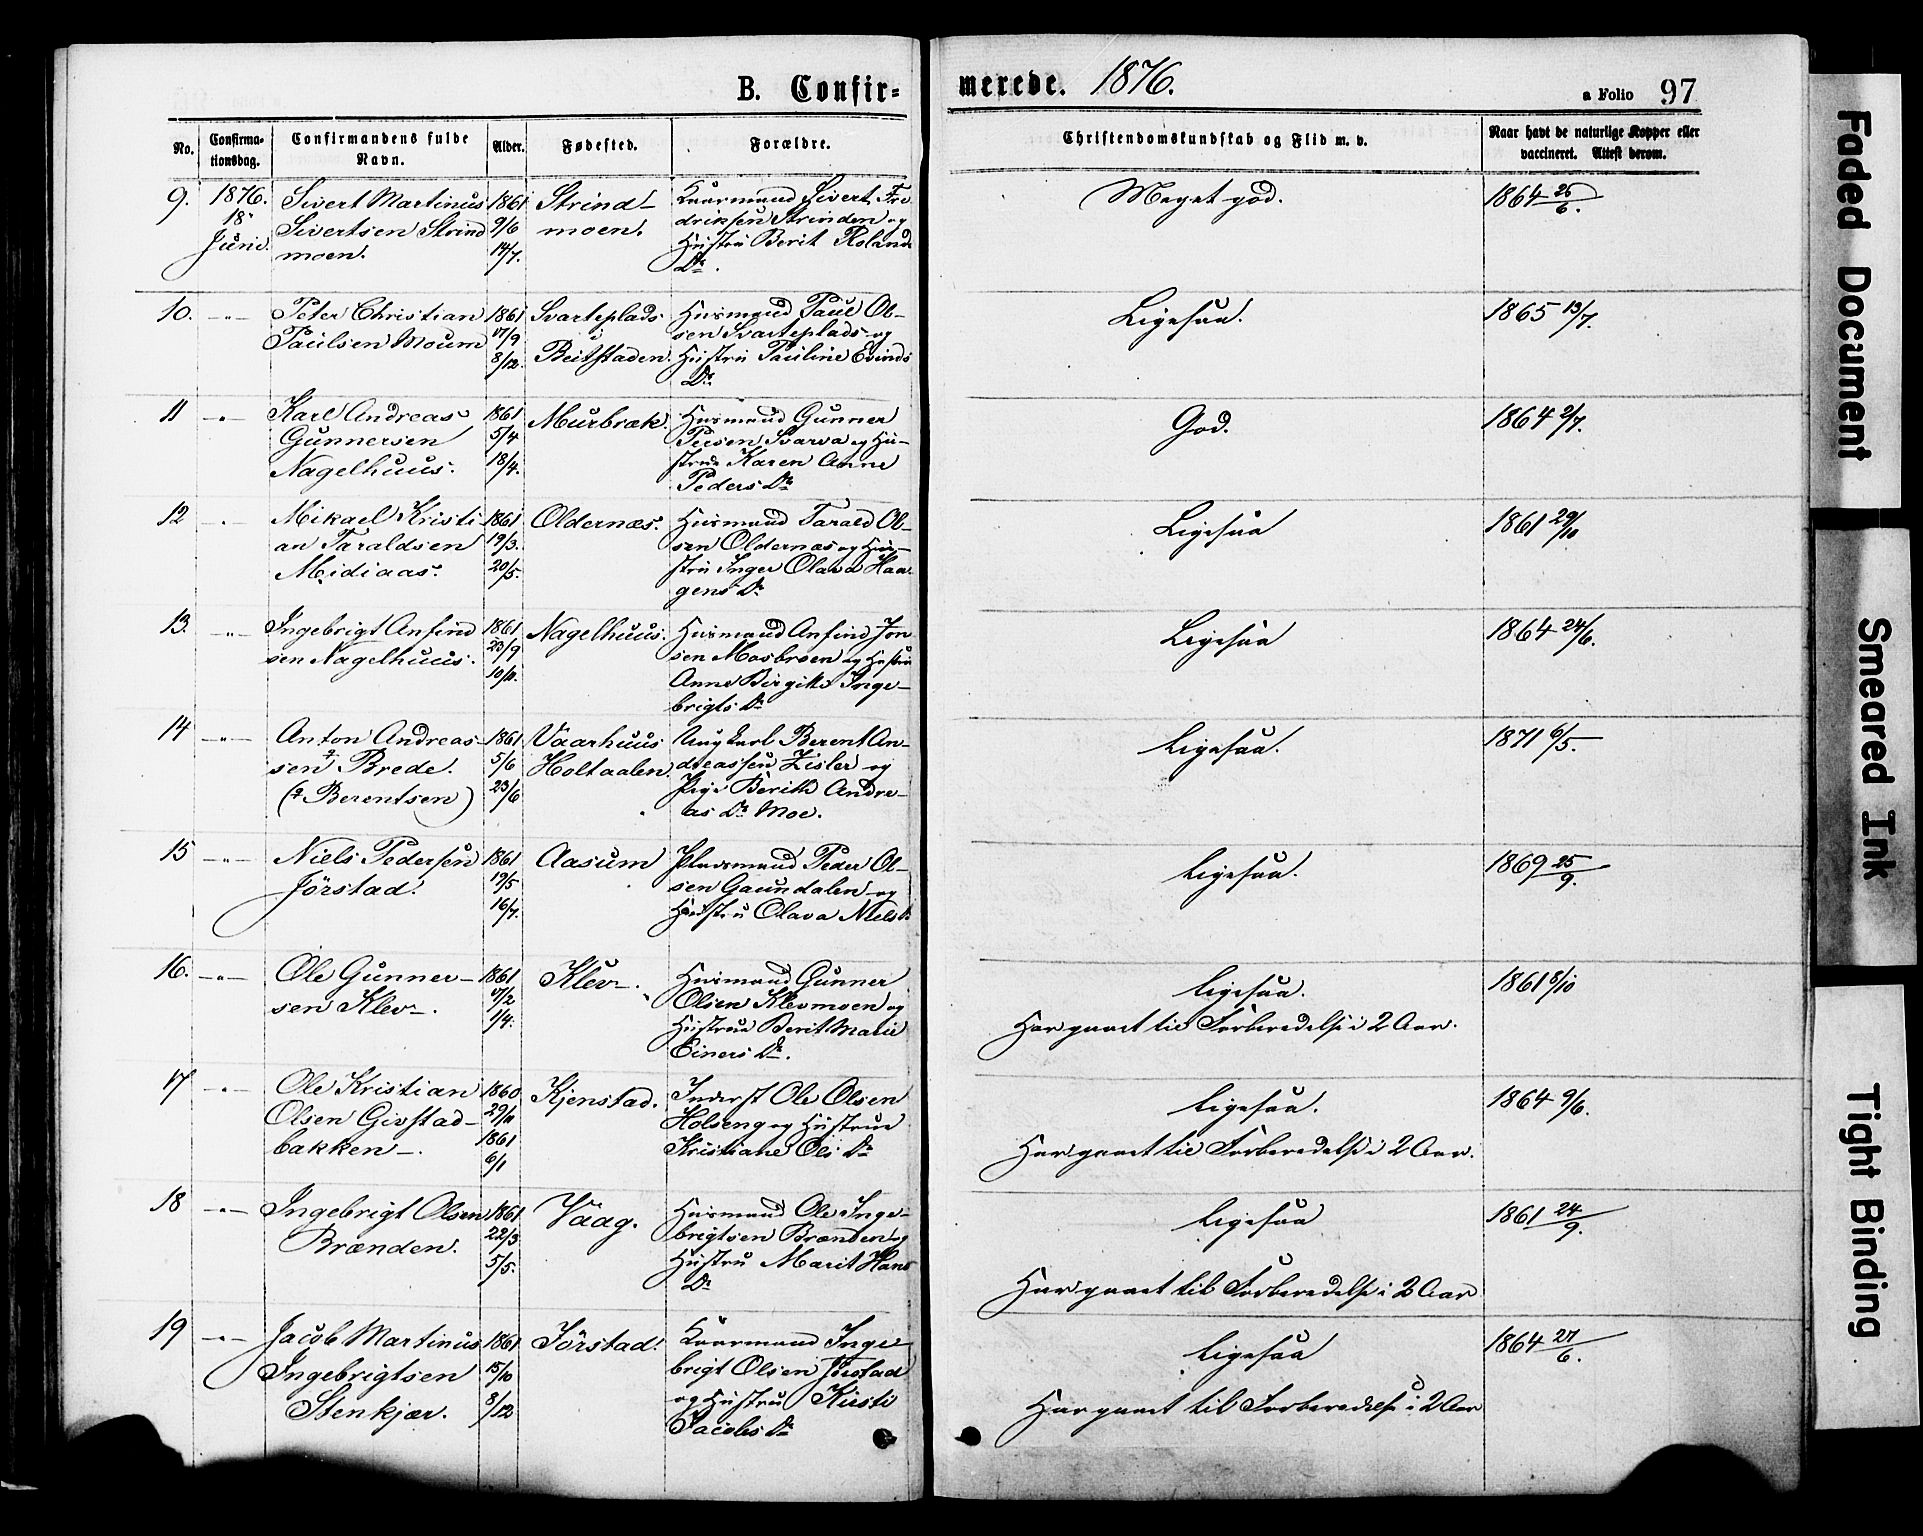 B. Confir=
merede. 1876.
a Folio 97
No.
Confirma-
tionsdag.
Confirmandens fulde
Navn.
Alder.
Fødested.
Forældre.
Christendomskundskab og Flid m. v.
Naar havt de naturlige Kopper eller
vaccineret. Attest derom.
9.
1876.
18
Junii
Sivert Martinus
Sivertsen Strind
moen.
1861
9/6
14/7.
Strind-
moen.
Kaarmand Sivert Fre
driksen Strinden og
Hustru Berit Rolands
Dr.
Meget god.
1864 26/6.
10. -"-
Peter Christian
Paulsen Moum
1861
17/9
8/12.
Svarteplads
i
Beitstaden.
Husmand Paul Ol-
sen Svarteplads og
Hustru Pauline Evinds
Dr.
Ligesaa.
1865 13/7.
11 -"-
Karl Andreas
Gunnersen
Nagelhuus.
1861
5/4
18/4.
Murbræk.
Husmand Gunner
Svarva og Hu-
strue Karen Anne
Peders Dr
God.
1864 2/7.
12 "
Mikael Kristi-
an Taraldsen
Midiaas.
1861
19/3.
20/5.
Oldernæs.
Husmand Tarald Ol-
sen Oldernæs og Hu-
stru Inger Olava Haa-
gens Dr
Ligesaa
1861 29/10
13. -"-
Ingebrigt Anfind
sen Nagelhuus.
1861
23/9
10/11.
Nagelhuus.
Husmand Anfind Jon
sen Mosbroen og Hustru
Anne Birgitte Inge-
brigts Dr
Ligesaa
1864 24/6.
14 -"-
Anton Andreas-
sen Brede.
(Berentsen)
1861
5/6
23/6
Vaarhuus
Holtaalen.
Ungkarl Berent An-
dreassen Zisler og
Pige Berith Andre-
as Dr Moe.
Ligesaa.
1871 6/5.
15 -"-
Niels Pedersen
Jörstad.
1861
19/5
16/7.
Aasum
Pladsmand Peder Ol-
sen Gaundalen og
Hustru Olava Niels Dr
Ligesaa.
1869 25/9.
16. -"-
Ole Gunner-
sen Klev.
1861
17/2
1/4.
Klev.
Husmand Gunner
Olsen Klevmoen og
Hustrue Berit Marie
Einers Dr.
Ligesaa.
Har gaaet til Forberedelse i 2 Aar.
1861 8/10
17 -"-
Ole Kristian
Olsen Givstad-
bakken.
1860
29/11
1861
6/1
Kjenstad.
Inderst Ole Olsen
Holseng og Hustrue
Kristiane Ols Dr
Ligesaa.
Har gaaet til Forberedelse i 2 Aar.
1864 9/6.
18 -"-
Ingebrigt Olsen
Brænden.
1861
22/3
5/5.
Vaag.
Husmand Ole Inge-
brigtsen Brænden og
Hustru Marit Hans
Dr
Ligesaa
Har gaaet til Forberedelse i 2 Aar
1861 24/9.
19 -"-
Jacob Martinus
Ingebrigtsen
Stenkjær.
1861
15/10
8/12
Jörstad.
Kaarmand Inge
brigt Olsen Jörstad
og Hustru Kirsti
Jacobs Dr
Ligesaa
Har gaaet til Forberedelse i 2 Aar
1864 27/6.
Faded Document
Smeared Ink
Tight Binding